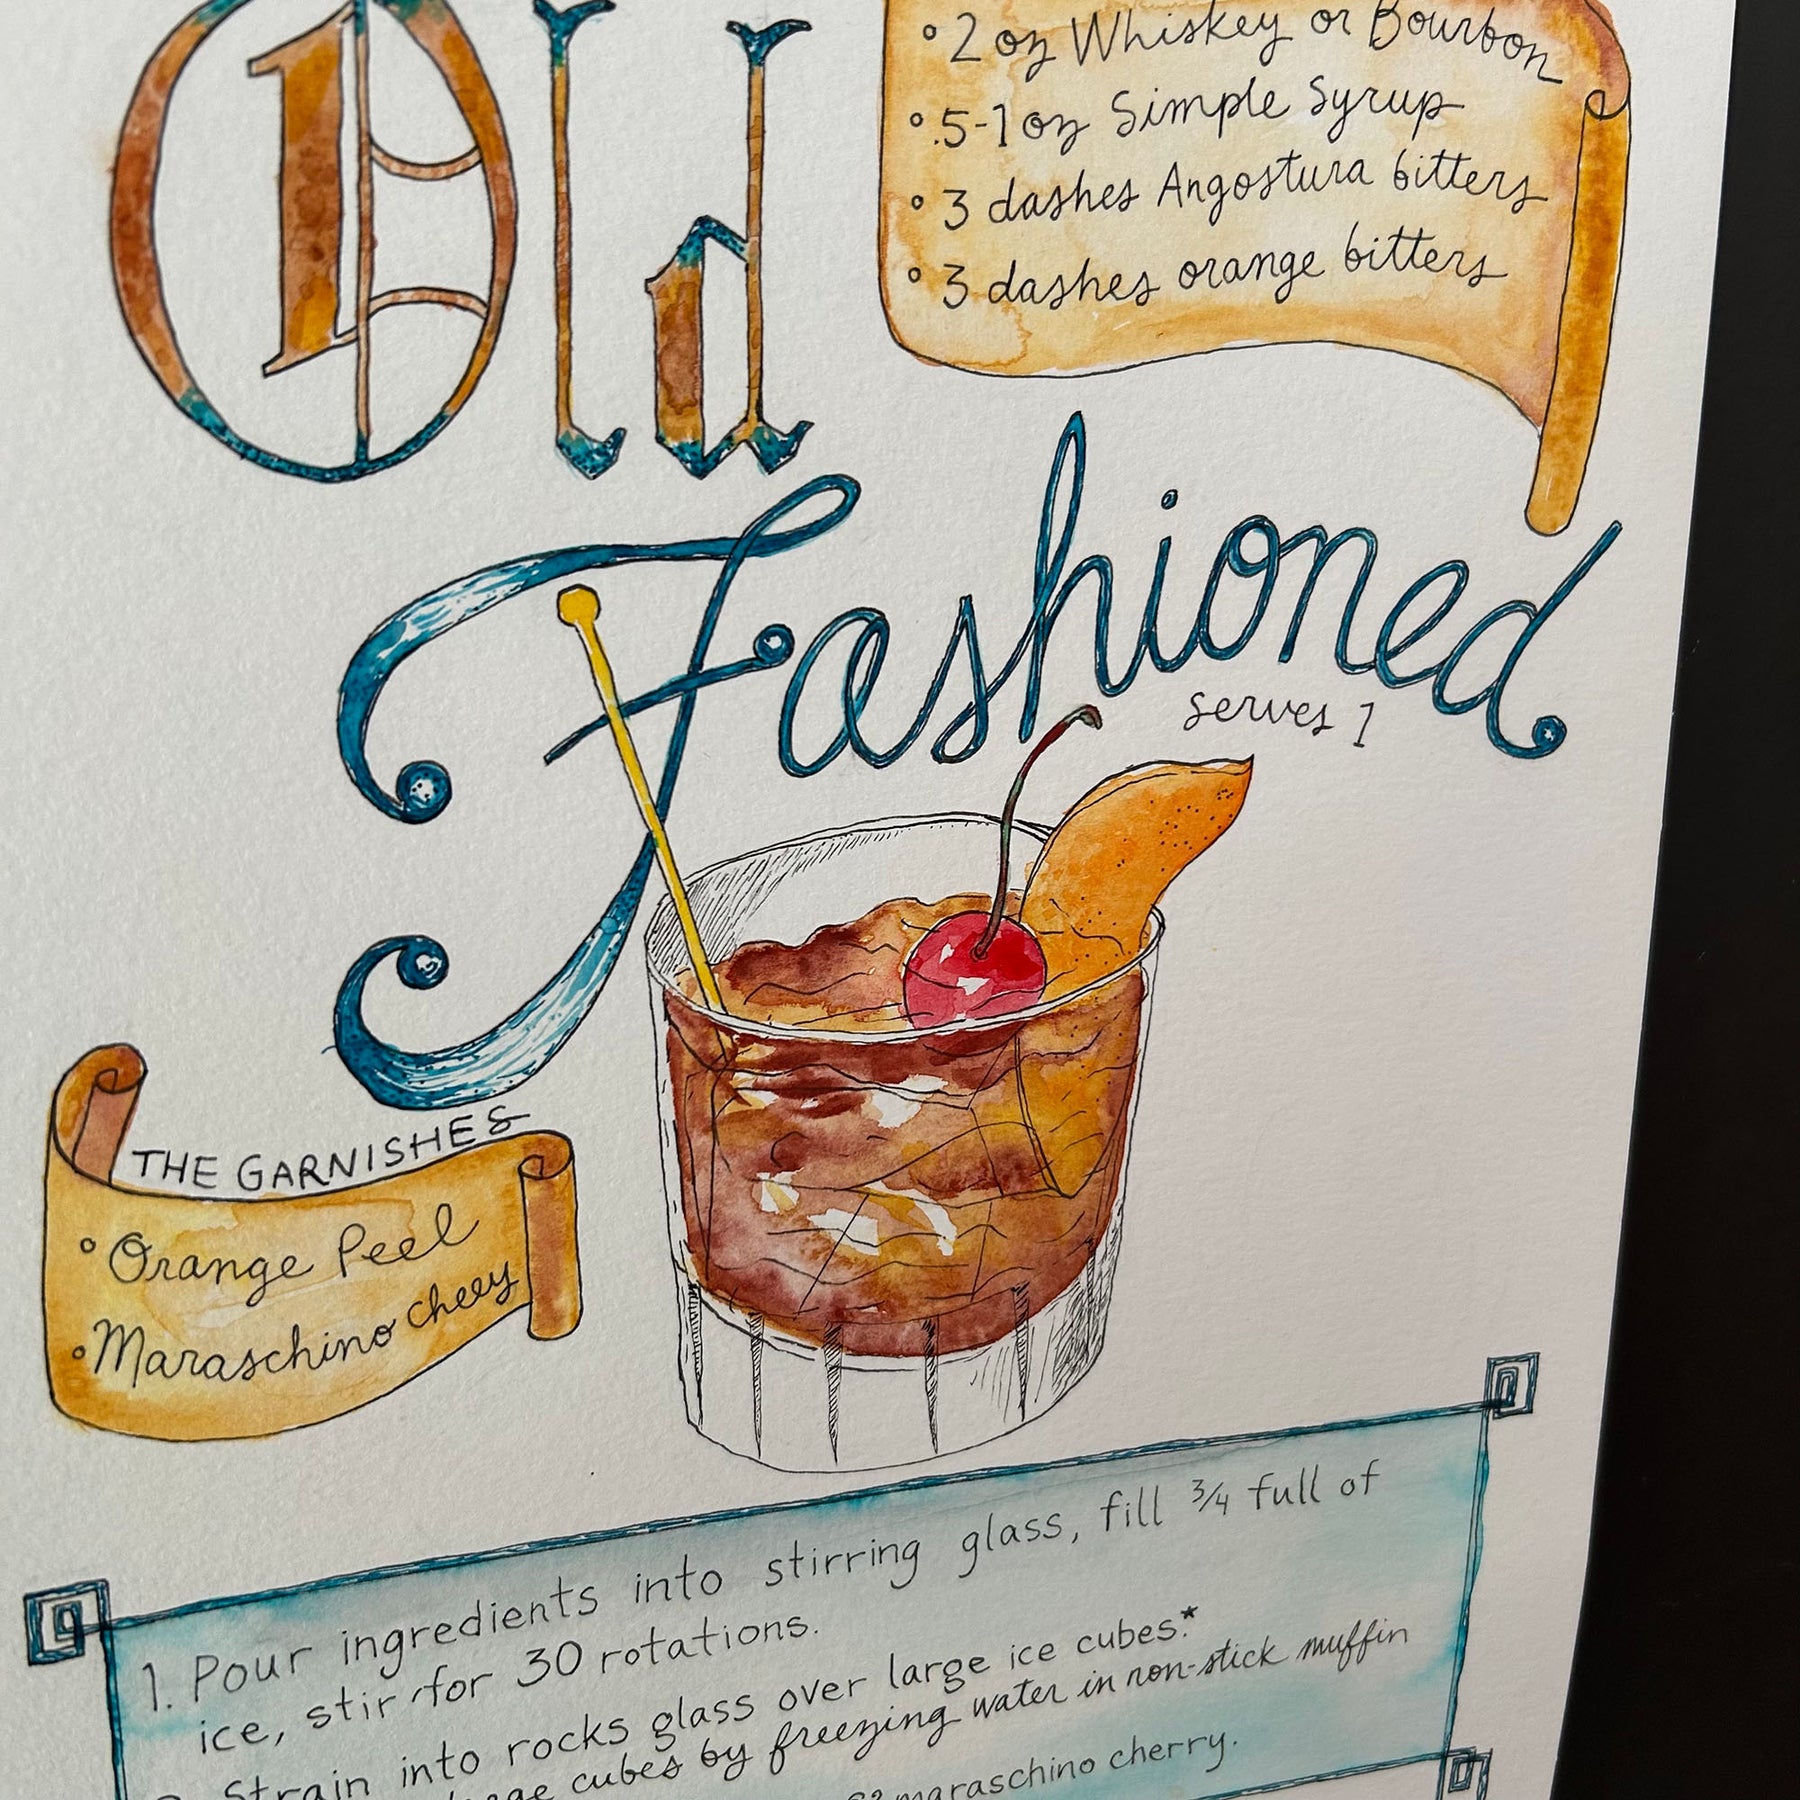 Old
° 2 oz Whiskey or Bourbon
° .5-1 oz Simple Syrup
° 3 dashes Angostura bitters
° 3 dashes orange bitters
Fashioned
serves 1
THE GARNISHES
° Orange Peel
° Maraschino cheey
1. Pour ingredients into stirring glass, fill 3/4 full of
ice, stir for 30 rotations.
Strain into rocks glass over large ice cubes.*
cubes by freezing water in non-stick muffin
maraschino cherry.